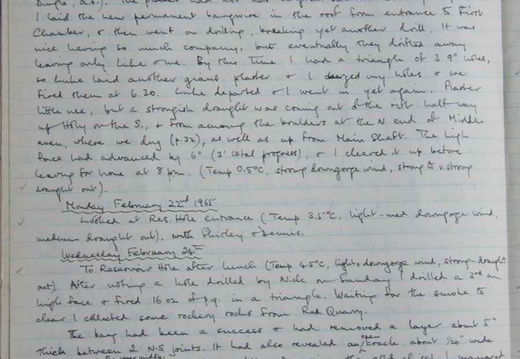 I laid the new permanent bangwire in the roof from entrance to First
Chamber, & then went on drilling, breaking yet another drill. It was
nice having so much company, but eventually they drifted away
leaving only Luke & me. By this time I had a triangle of 3 9" holes,
so Luke laid another giant plaster & I charged my holes & we
fired them at 6.30. Luke departed & I went in yet again. Plaster
little use, but a strongish draught was coming out of the rift half way
up Hilly on the S., & from among the boulders at the N end of Middle
even, where we dug (p.32), as well as up from Main Shaft. The high
face had advanced by 6" (3' total progress), & I cleared it up before
leaving for home at 8 pm. (Temp 0.5°C, strong downgorge wind, strong to v. strong
draught out).
Monday February 22nd 1965
Looked at Res. Hole Entrance (Temp 3.5°C, light-med downgorge wind,
medium draught out), with Shirley & Dennis.
Wednesday February 24th
To Reservoir Hole after lunch (Temp 4.5°C, light downgorge wind, strong draught
out). After noting a hole drilled by Nick on Sunday I drilled a 3rd on
high face & fired 16 oz of p.g. in a triangle. Waiting for the smoke to
clear I collected some rockery rocks from Red Quarry.
The bang had been a success & had removed a layer about 5"
thick between 2 N-S joints. It had also revealed an open crack about 1/20" wide